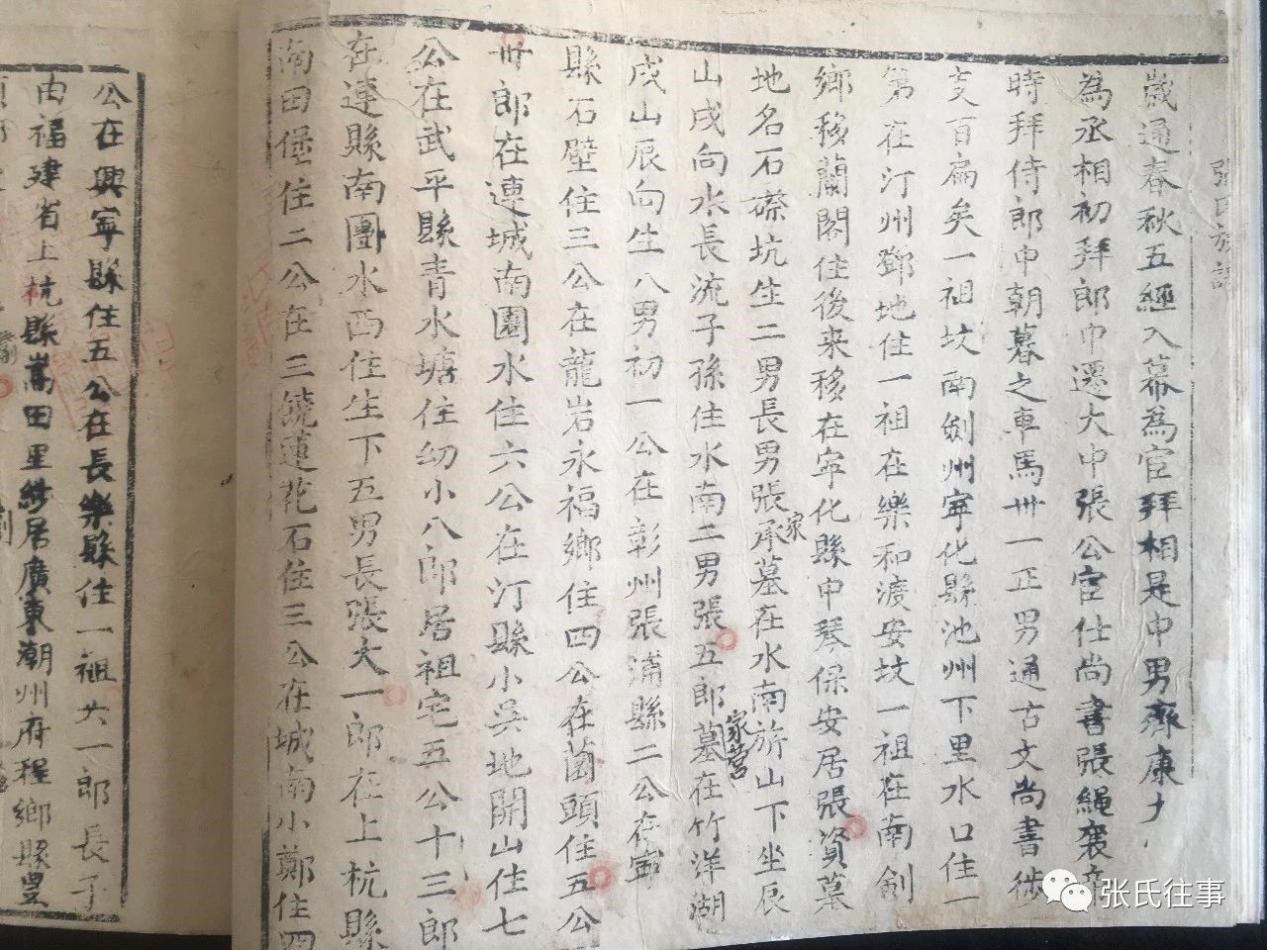 張氏族譜
歲通春秋五經入幕為官拜相是中男齊康
為丞相初拜郎中遷大中張公官仕尚書張繩褒
時拜侍郎中朝暮之車馬卅一正男通古文尚書
支百扁矣一祖坟南劍州寜化縣池州下里水口住一
第在汀州鄧地住一祖在樂和渡安坟一祖在南劍
鄉移蘭閣住後来移在寜化縣中琴保安居張資墓
地名石磜坑生二男長男張承家墓在水南旂山下坐辰
山戌向水長流子孫住水南二男張五郎家營墓在竹洋湖
戌山辰向生八男初一公在彰州張浦縣二公在寜
縣石壁住三公在龍岩永福鄉住四公在菌頭住五公
卅郎在連城南園水住六公在汀縣小吳地開山住七
公在武平縣青水塘住幼小八郎居祖宅五公十三郎
在連縣南團水西住生下五男長張大一郎在上杭縣
南田堡住二公在三饒蓮花石住三公在城南小鄭住四
公在興寜縣住五公在長樂縣住一祖大一郎長子
由福建省上杭縣嵩田里紗居廣東潮州府程鄉縣豐
张氏往事